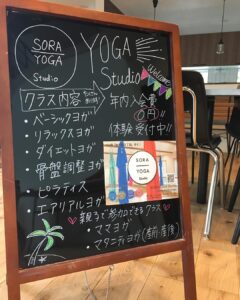 SORA
YOGA
Studio
YOGA
Studio
Welcome
クラス内容
年内入会費
0円!!
体験受付中!!
・ベーシックヨガ
・リラックスヨガ
・ダイエットヨガ
・骨盤調整ヨガ
・ピラティス
・エアリアルヨガ
SORA
YOGA
Studio
♡親子で参加できるクラス♡
・ママヨガ
・マタニティヨガ(産前・産後)